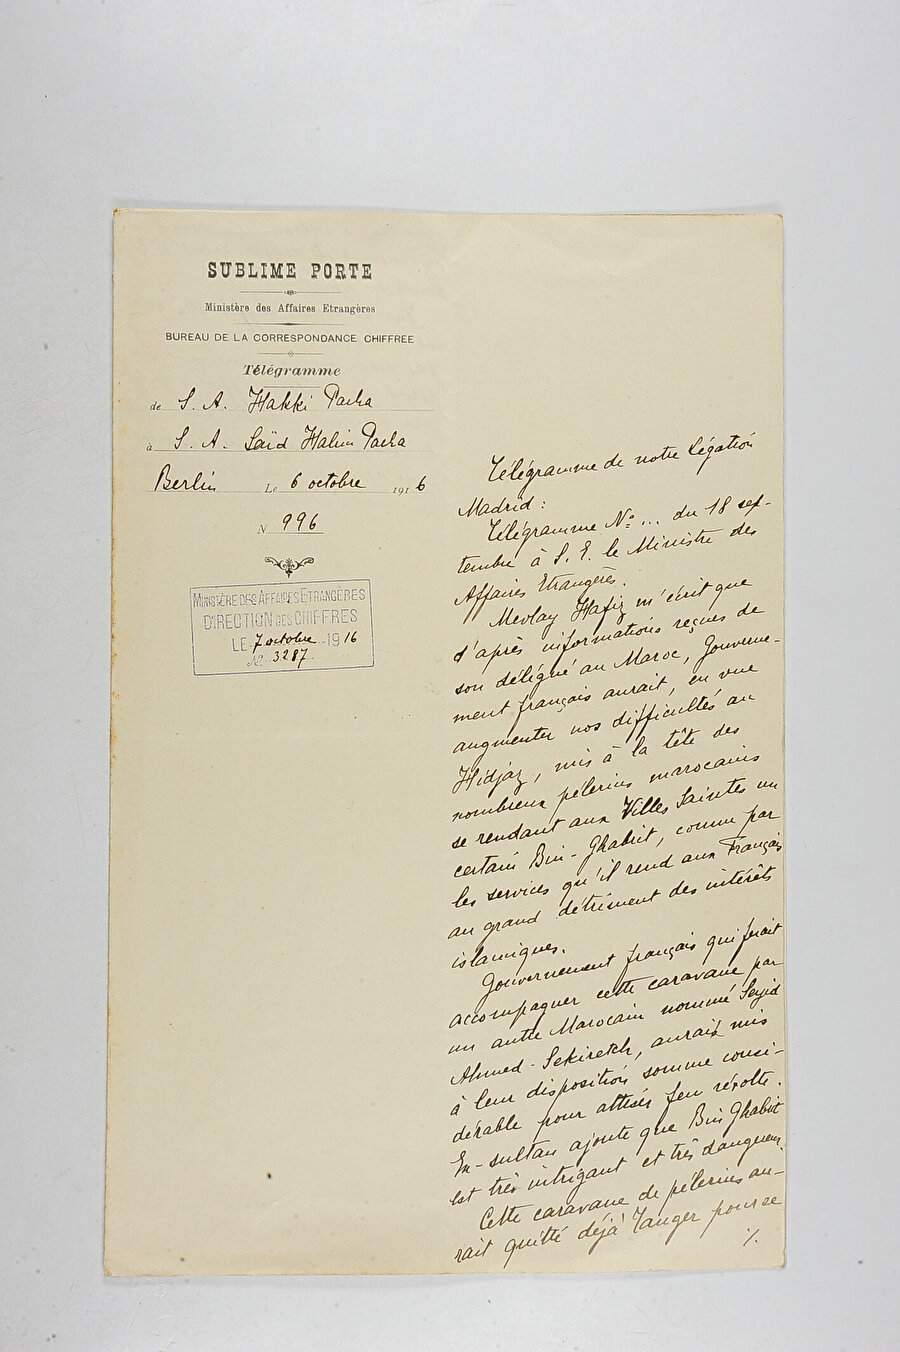 SUBLIME PORTE
Ministère des Affaires Etrangères
BUREAU DE LA CORRESPONDANCE CHIFFRÉE
Télégramme
de S. A. Hakki Pacha
à S. A. Saïd Halim Pacha
Berlin Le 6 octobre 1916
N 996
MINISTÈRE DES AFFAIRES ETRANGÈRES
DIRECTION DES CHIFFRES
LE 7 octobre 1916
No 3287
Télégramme de notre Légation
Madrid :
Télégramme No ... du 18 sep-
tembre à S. E. le Ministre des
Affaires Etrangères.
Mevlay Hafiz m'écrit que
d'après informations reçues de
son délégué au Maroc, Gouverne-
ment français aurait, en vue
augmenter nos difficultés au
Hidjaz, mis à la tête des
nombreux pélerins marocains
se rendant aux Villes Saintes un
certain Bin-Ghabrit, connu par
les services qu'il rend aux Français
au grand détriment des intérêts
islamiques.
Gouvernement français qui ferait
accompagner cette caravane par
un autre Marocain nommé Seyid
Ahmed-Sekiretch, aurait mis
à leur disposition somme consi-
dérable pour attiser feu révolte.
Ex-sultan ajoute que Bin Ghabrit
est très intrigant et très dangereux.
Cette caravane de pélerins au-
rait quitté déjà Tanger pour se
./.